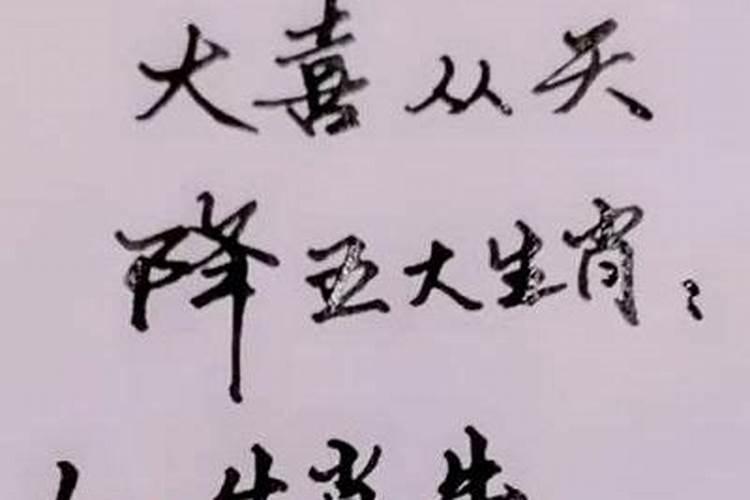 大喜从天
降五大生肖：